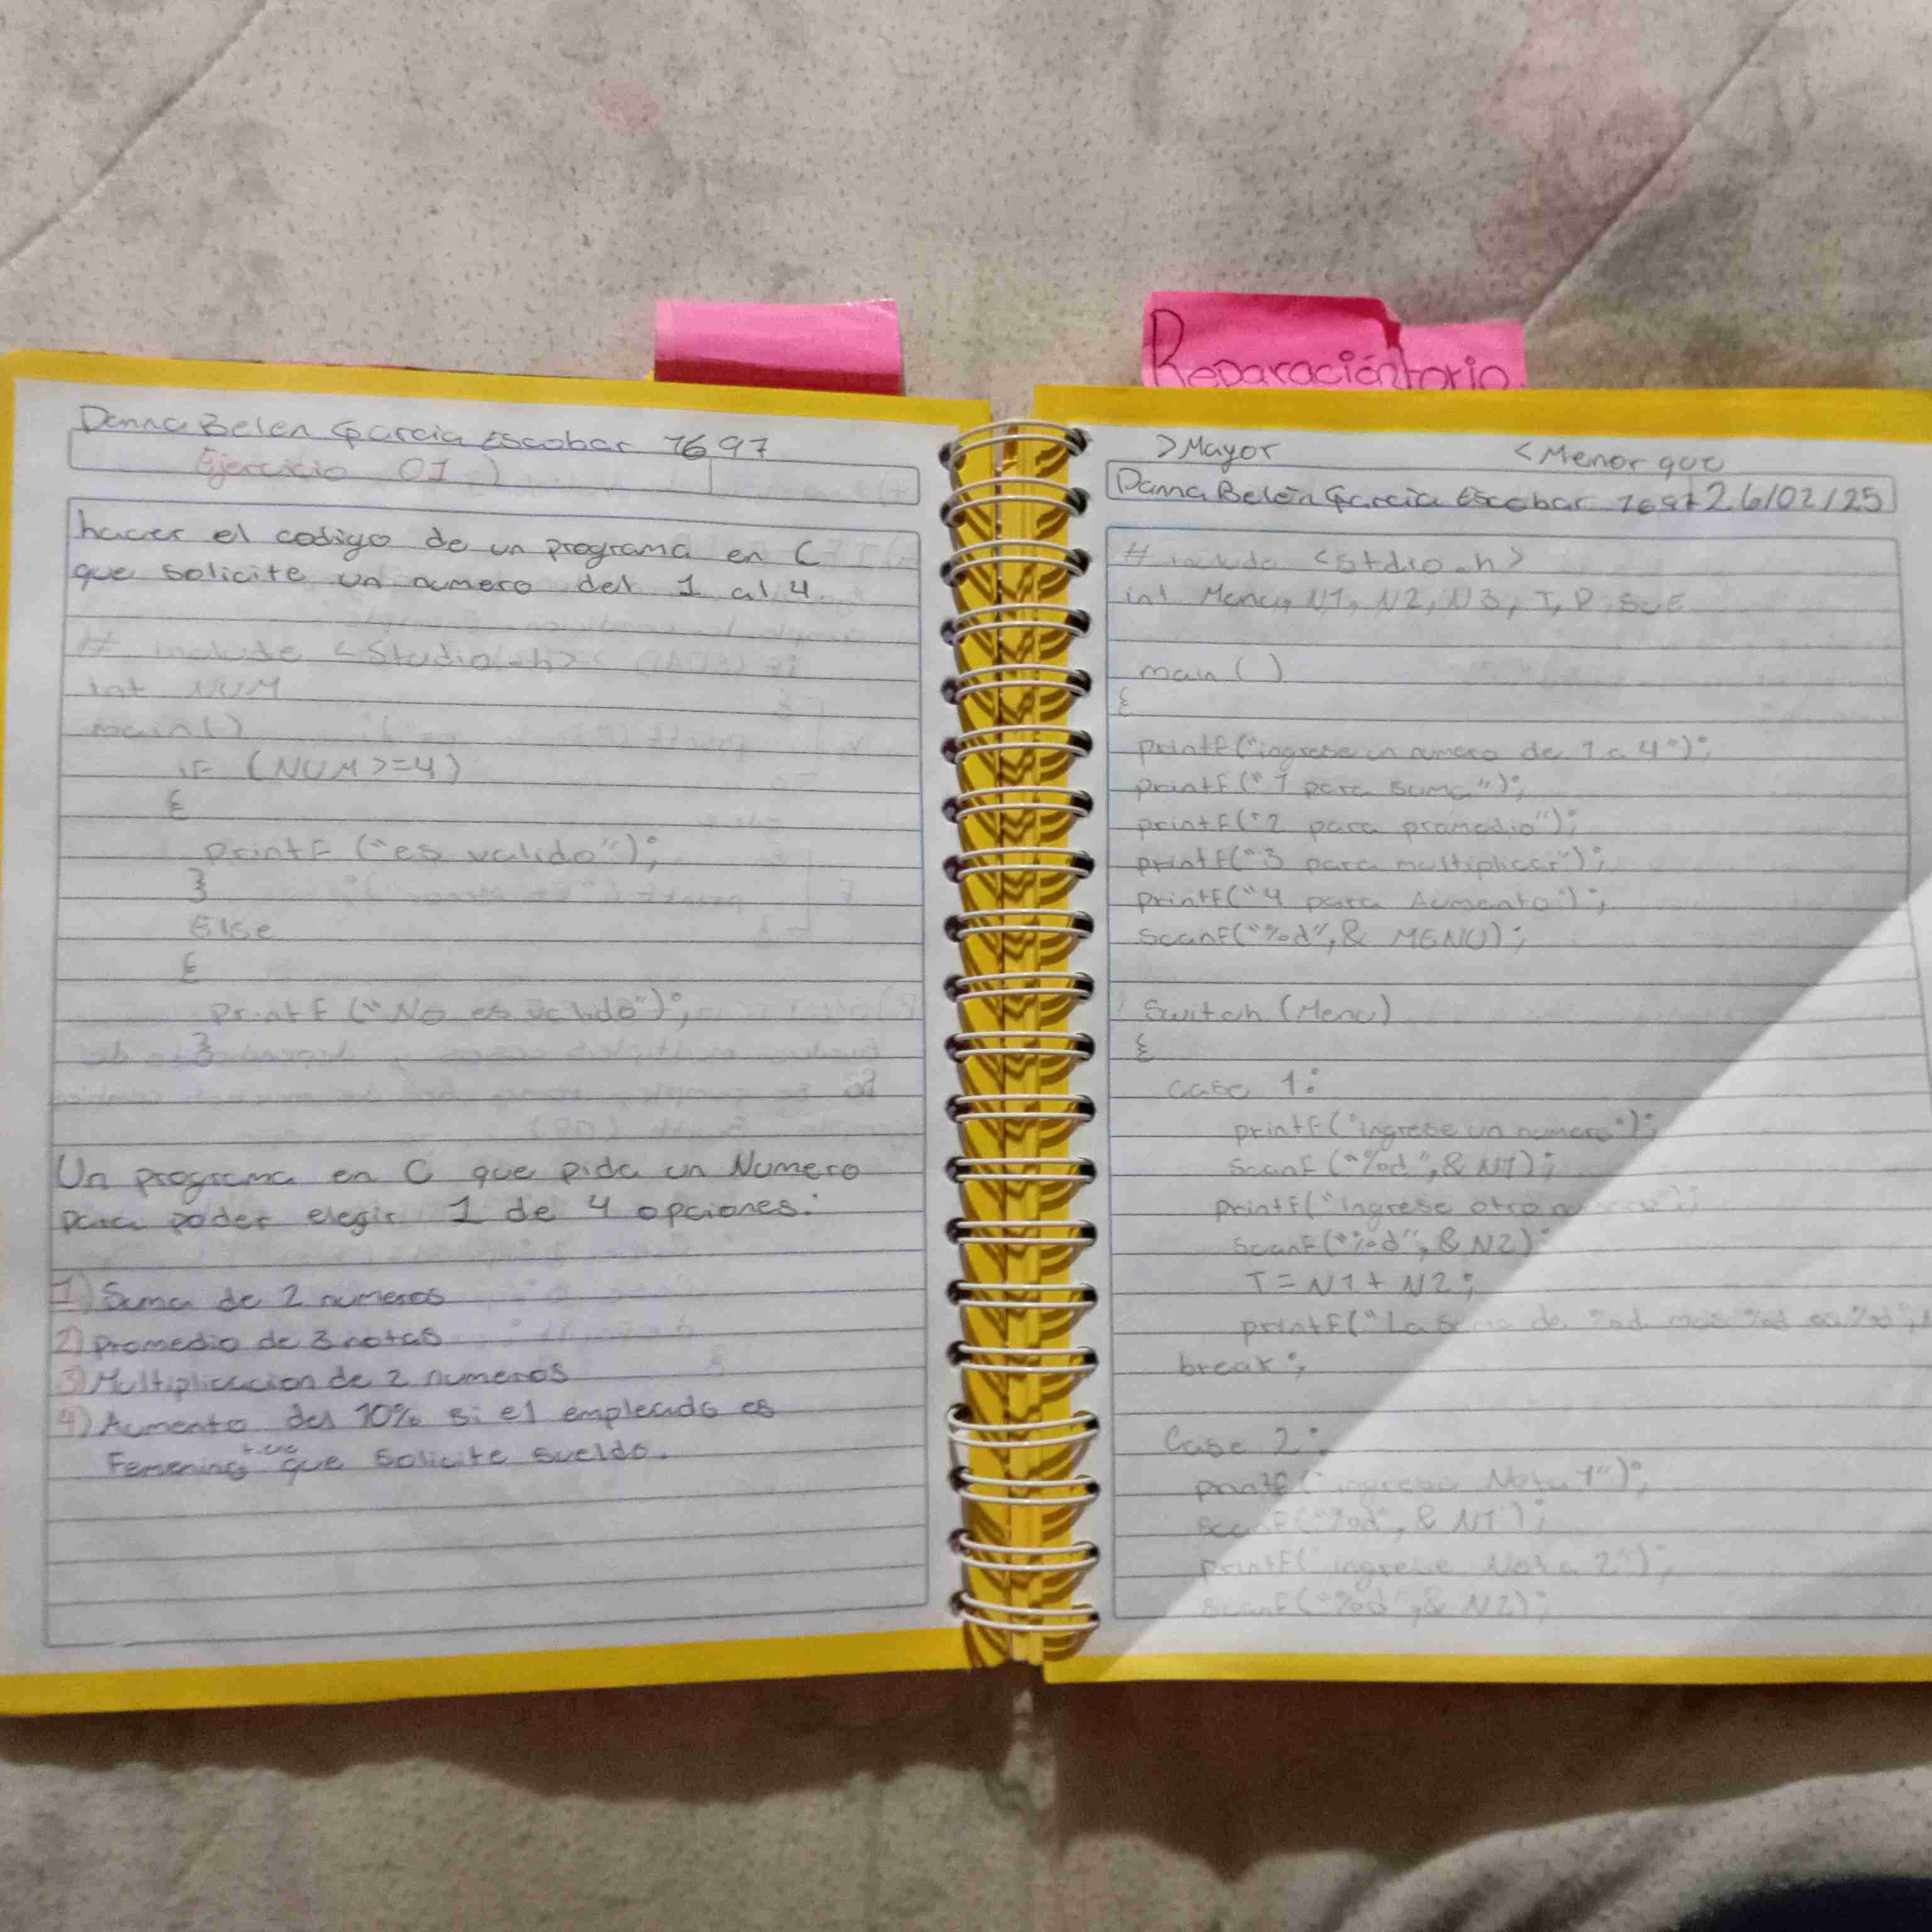 Reparacióntorio
Danna Belen Garcia Escobar 1697
Ejercicio 01)
hacer el codigo de un programa en C
que solicite un numero del 1 al 4.
# include <Studio.h>
int NUM
main()
if (NUM >=4)
{
printf ("es valido");
}
Else
{
printf ("No es valido");
}
Un programa en C que pida un Numero
para poder elegir 1 de 4 opciones:
1) Suma de 2 numeros
2) Promedio de 3 notas
3) Multiplicacion de 2 numeros
4) Aumento del 10% si el empleado es
Femenino que solicite sueldo.
>Mayor <Menor que
Danna Belén Garcia Escobar 1697 26/02/25
# include <stdio.h>
int Menu, N1, N2, N3, T, P, SUE
main ()
{
printf("ingrese un numero de 1 a 4");
printf("1 para suma");
printf("2 para promedio");
printf("3 para multiplicar");
printf("4 para Aumento");
scanf("%d",& MENU);
Switch (Menu)
{
case 1:
printf("ingrese un numero");
scanf ("%d",& N1);
printf("Ingrese otro numero");
scanf("%d",& N2);
T = N1 + N2;
printf("La suma de %d mas %d es %d",
break;
Case 2:
printf("ingrese Nota 1");
scanf("%d",& N1);
printf("ingrese Nota 2");
scanf("%d",& N2);